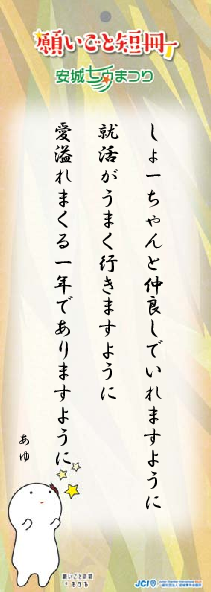 願いごと短冊
安城七夕まつり
しょーちゃんと仲良しでいれますように
就活がうまく行きますように
愛溢れまくる一年でありますように
あゆ
願いごと短冊
JCI